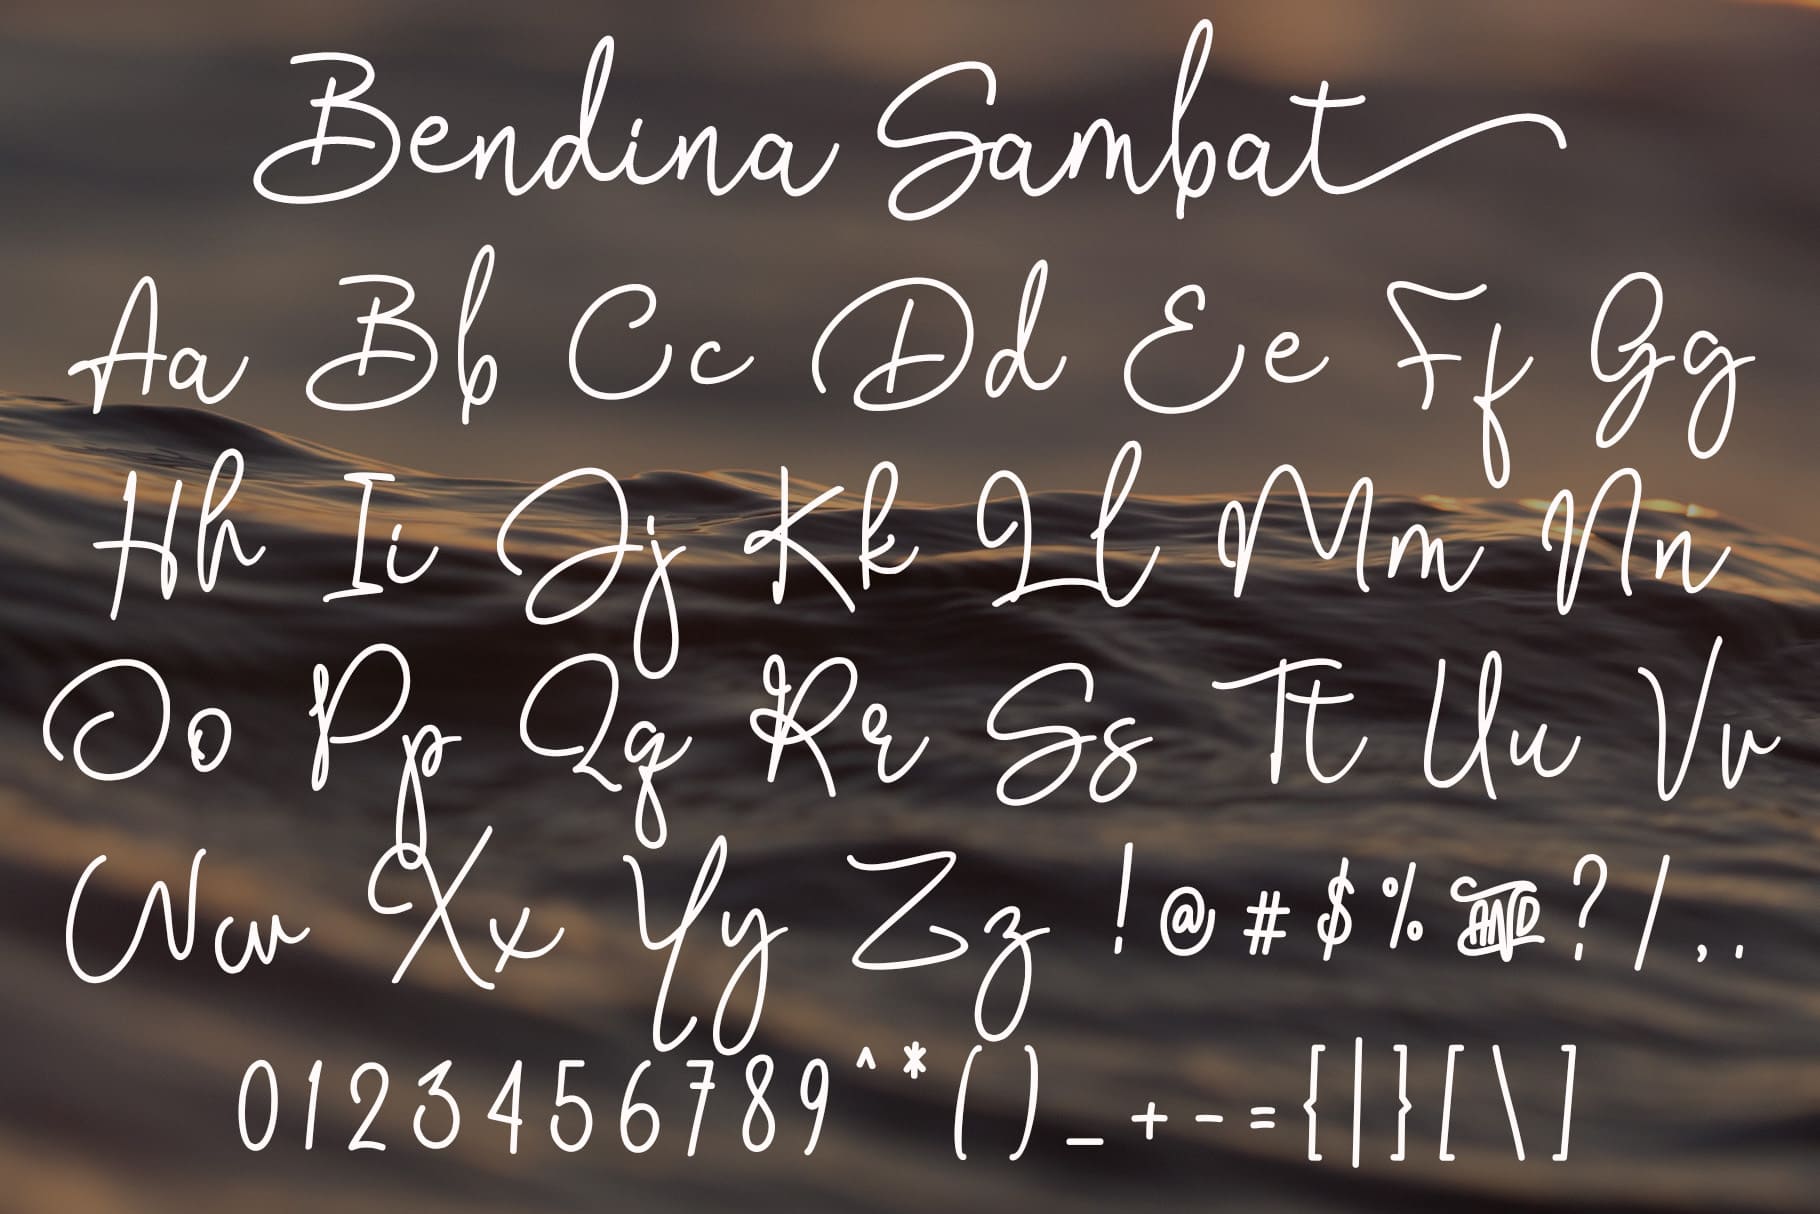 Bendina Sambat
Aa Bb Cc Dd Ee Ff Gg
Hh Ii Jj Kk Ll Mm Nn
Oo Pp Qq Rr Ss Tt Uu Vv
Ww Xx Yy Zz ! @ # $ % AND ? / , .
0 1 2 3 4 5 6 7 8 9 ^ * ( ) _ + - = { | } [ \ ]